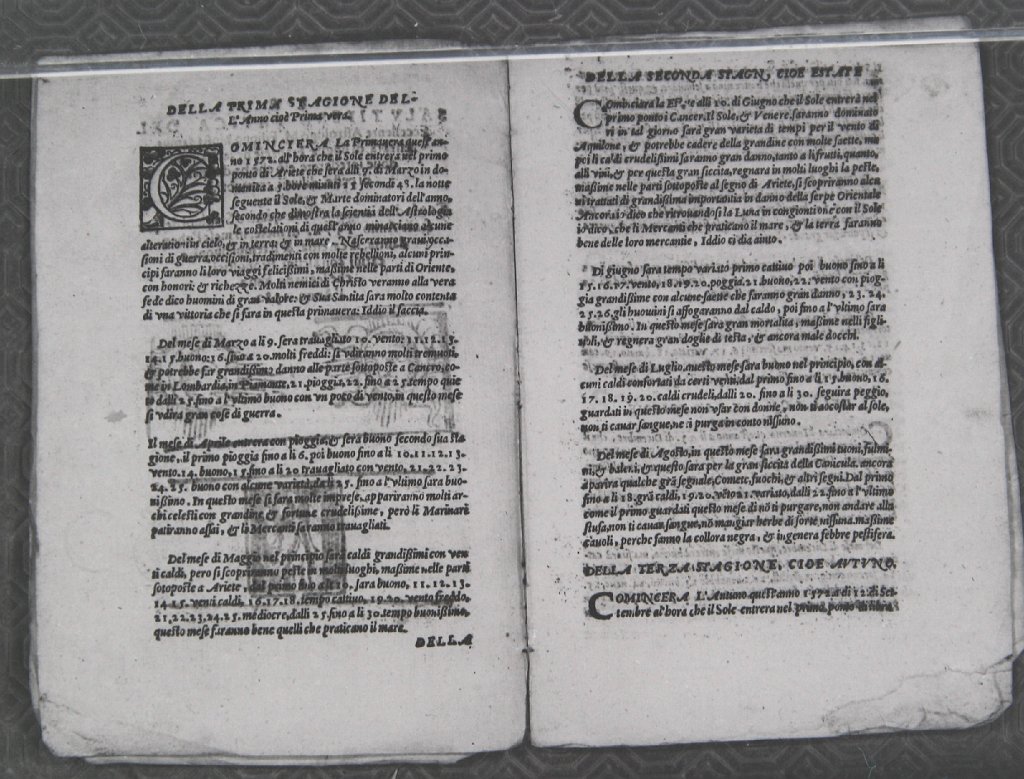 DELLA PRIMA STAGIONE DEL-
L'Anno cioè Prima vera.
COMINCIERA La Primauera quest'an-
no 1572. all'hora che il Sole entrerà nel primo
ponto di Ariete che serà alli 9. di Marzo in do-
menica a hore minuti secondi 43. la notte
seguente il Sole, & Marte dominatori dell'anno,
secondo che dimostra la scientia dell'Astrologia
le costelationi di quest'anno minacciano alcune
alterationi in cielo, & in terra: & in mare. Nasceranno graui occa
sioni di guerra, occisioni, tradimenti con molte rebellioni, alcuni prin-
cipi faranno li loro viaggi felicissimi, massime nelle parti di Oriente,
con honori: & richezze. Molti nemici di Christo veranno alla vera
fede dico huomini di gran valore: & Sua Santità sara molto contenta
di vna vittoria che si farà in questa primauera: Iddio il faccia.
Del mese di Marzo a li 9. sera trauagliato 10. vento: 11. 12. 13.
14. 15. buono: 16. fino a 20. molti freddi: si vdiranno molti tremuoti,
& potrebbe far grandissimo danno alle parte sottoposte a Cancro, co-
me in Lombardia, in Piamonte, 21. pioggia, 22. fino a 25. tempo quie
to dalli 25. fino a l'vltimo buono con vn poco di vento, in questo mese
si vdirà gran cose di guerra.
Il mese di Aprile entrera con pioggia, & serà buono secondo sua sta
gione, il primo pioggia fino a li 6. poi buono fino a li 10. 11. 12. 13.
vento. 14. buono, 15. fino a li 20 trauagliato con vento, 21. 22. 23.
24. 25. buono con alcune varietà, da li 25. fino a l'vltimo sara buo-
nissimo. In questo mese si farà molte imprese, appariranno molti ar-
chi celesti con grandine & fortune crudelissime, però li Marinari
patiranno assai, & li Mercanti saranno trauagliati.
Del mese di Maggio nel principio sarà caldi grandissimi con ven
ti caldi, pero si scopriranno peste in molti luoghi, massime nelle parti
sotoposte a Ariete, dal primo fino a li 10. sara buono, 11. 12. 13.
14 15. venti caldi, 16. 17. 18. tempo cattiuo, 19. 20. vento freddo,
21. 22. 23. 24. 25. mediocre, dalli 25. fino a li 30. tempo buonissimo,
questo mese faranno bene quelli che praticano il mare.
DELLA
DELLA SECONDA STAGN, CIOE ESTATE
COminciara la alli 10. di Giugno che il Sole entrerà nel
primo ponto i Cancer. Il Sole, & Venere saranno dominato
ri in tal giorno serà gran varieta di tempi per il vento di
Aquilone, & potrebbe cadere della grandine con molte saette, ma
poi li caldi crudelissimi faranno gran danno, tanto a li frutti, quanto,
alli vini, & per questa gran siccità, regnara in molti luoghi la peste,
massime nelle parti sottoposte al segno di Ariete, si scopriranno alcu
ni trattati di grandissima importantia in danno della serpe Orientale
Ancora io dico che ritrouandosi la Luna in congiontione con il Sole
io dico, che li Mercanti che praticano il mare, & la terra faranno
bene delle loro mercantie, Iddio ci dia aiuto.
Di giugno sara tempo variato primo cattiuo poi buono fino a li
15. 16. 17. vento, 18. 19. 20. poggia. 21. buono, 22. vento con piog-
gia grandissime con alcune saette che faranno gran danno, 23. 24.
25. 26. gli huomini si affogaranno dal caldo, poi fino a l'vltimo sara
buonissimo. In questo mese sara gran mortalita, massime nelli figli-
uoli, & regnera gran doglie di testa, & ancora male docchi.
Del mese di Luglio, questo mese sara buono nel principio, con al-
cuni caldi confortati da certi venti, dal primo fino a li 15. buono, 16.
17. 18. 19. 20. caldi crudeli, dalli 20. fino a li 30. seguira peggio,
guardati in questo mese non vsar con donne, non ti accostar al sole,
non ti cauar sangue, ne ti purga in conto nissuno.
Del mese di Agosto, in questo mese sara grandissimi tuoni, fulmi-
ni, & baleni, & questo sara per la gran siccità della Canicula. ancora
aparira qualche grã segnale, Comete, fuochi, & altri segni. Dal primo
fino a li 18. grã caldi, 19. 20. vẽto 21. variato, dalli 22. fino a l'vltimo
come il primo guardati questo mese di nõ ti purgare, non andare alla
stufa, non ti cauar sangue, nõ mangiar herbe di sorte nissuna, massime
cauoli, perche fanno la collora negra, & ingenera febbre pestifera.
DELLA TERZA STAGIONE, CIOE AVTVNO.
COMINCERA L'Autuno quest'anno 1572 a di 12 di Set-
tembre al hora che il Sole entrera nel primo ponto di libra.